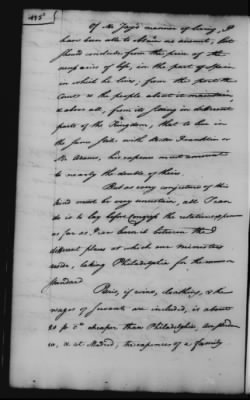 Of Mr Jay's manner of living, I
have been able to obtain no account, but
should conclude from the price of the
necessaries of life, in the part of Spain
in which he lives, from the port the
Court & the people about it maintain,
& above all, from its sitting in different
parts of the Kingdom, that to live in
the same style with Doctr Franklin or
Mr Adams, his expences must amount
to nearly the double of theirs.
But as every conjecture of this
kind must be very uncertain, all I can
do is to lay before Congress the relative expence
as far as I can learn it between the
different places at which our ministers
reside, taking Philadelphia for the common
standard
Paris, if wine, cloathing, & the
wages of servants are included, is about
20 p Ct cheaper than Philadelphia,
& at Madrid, the expences of a family